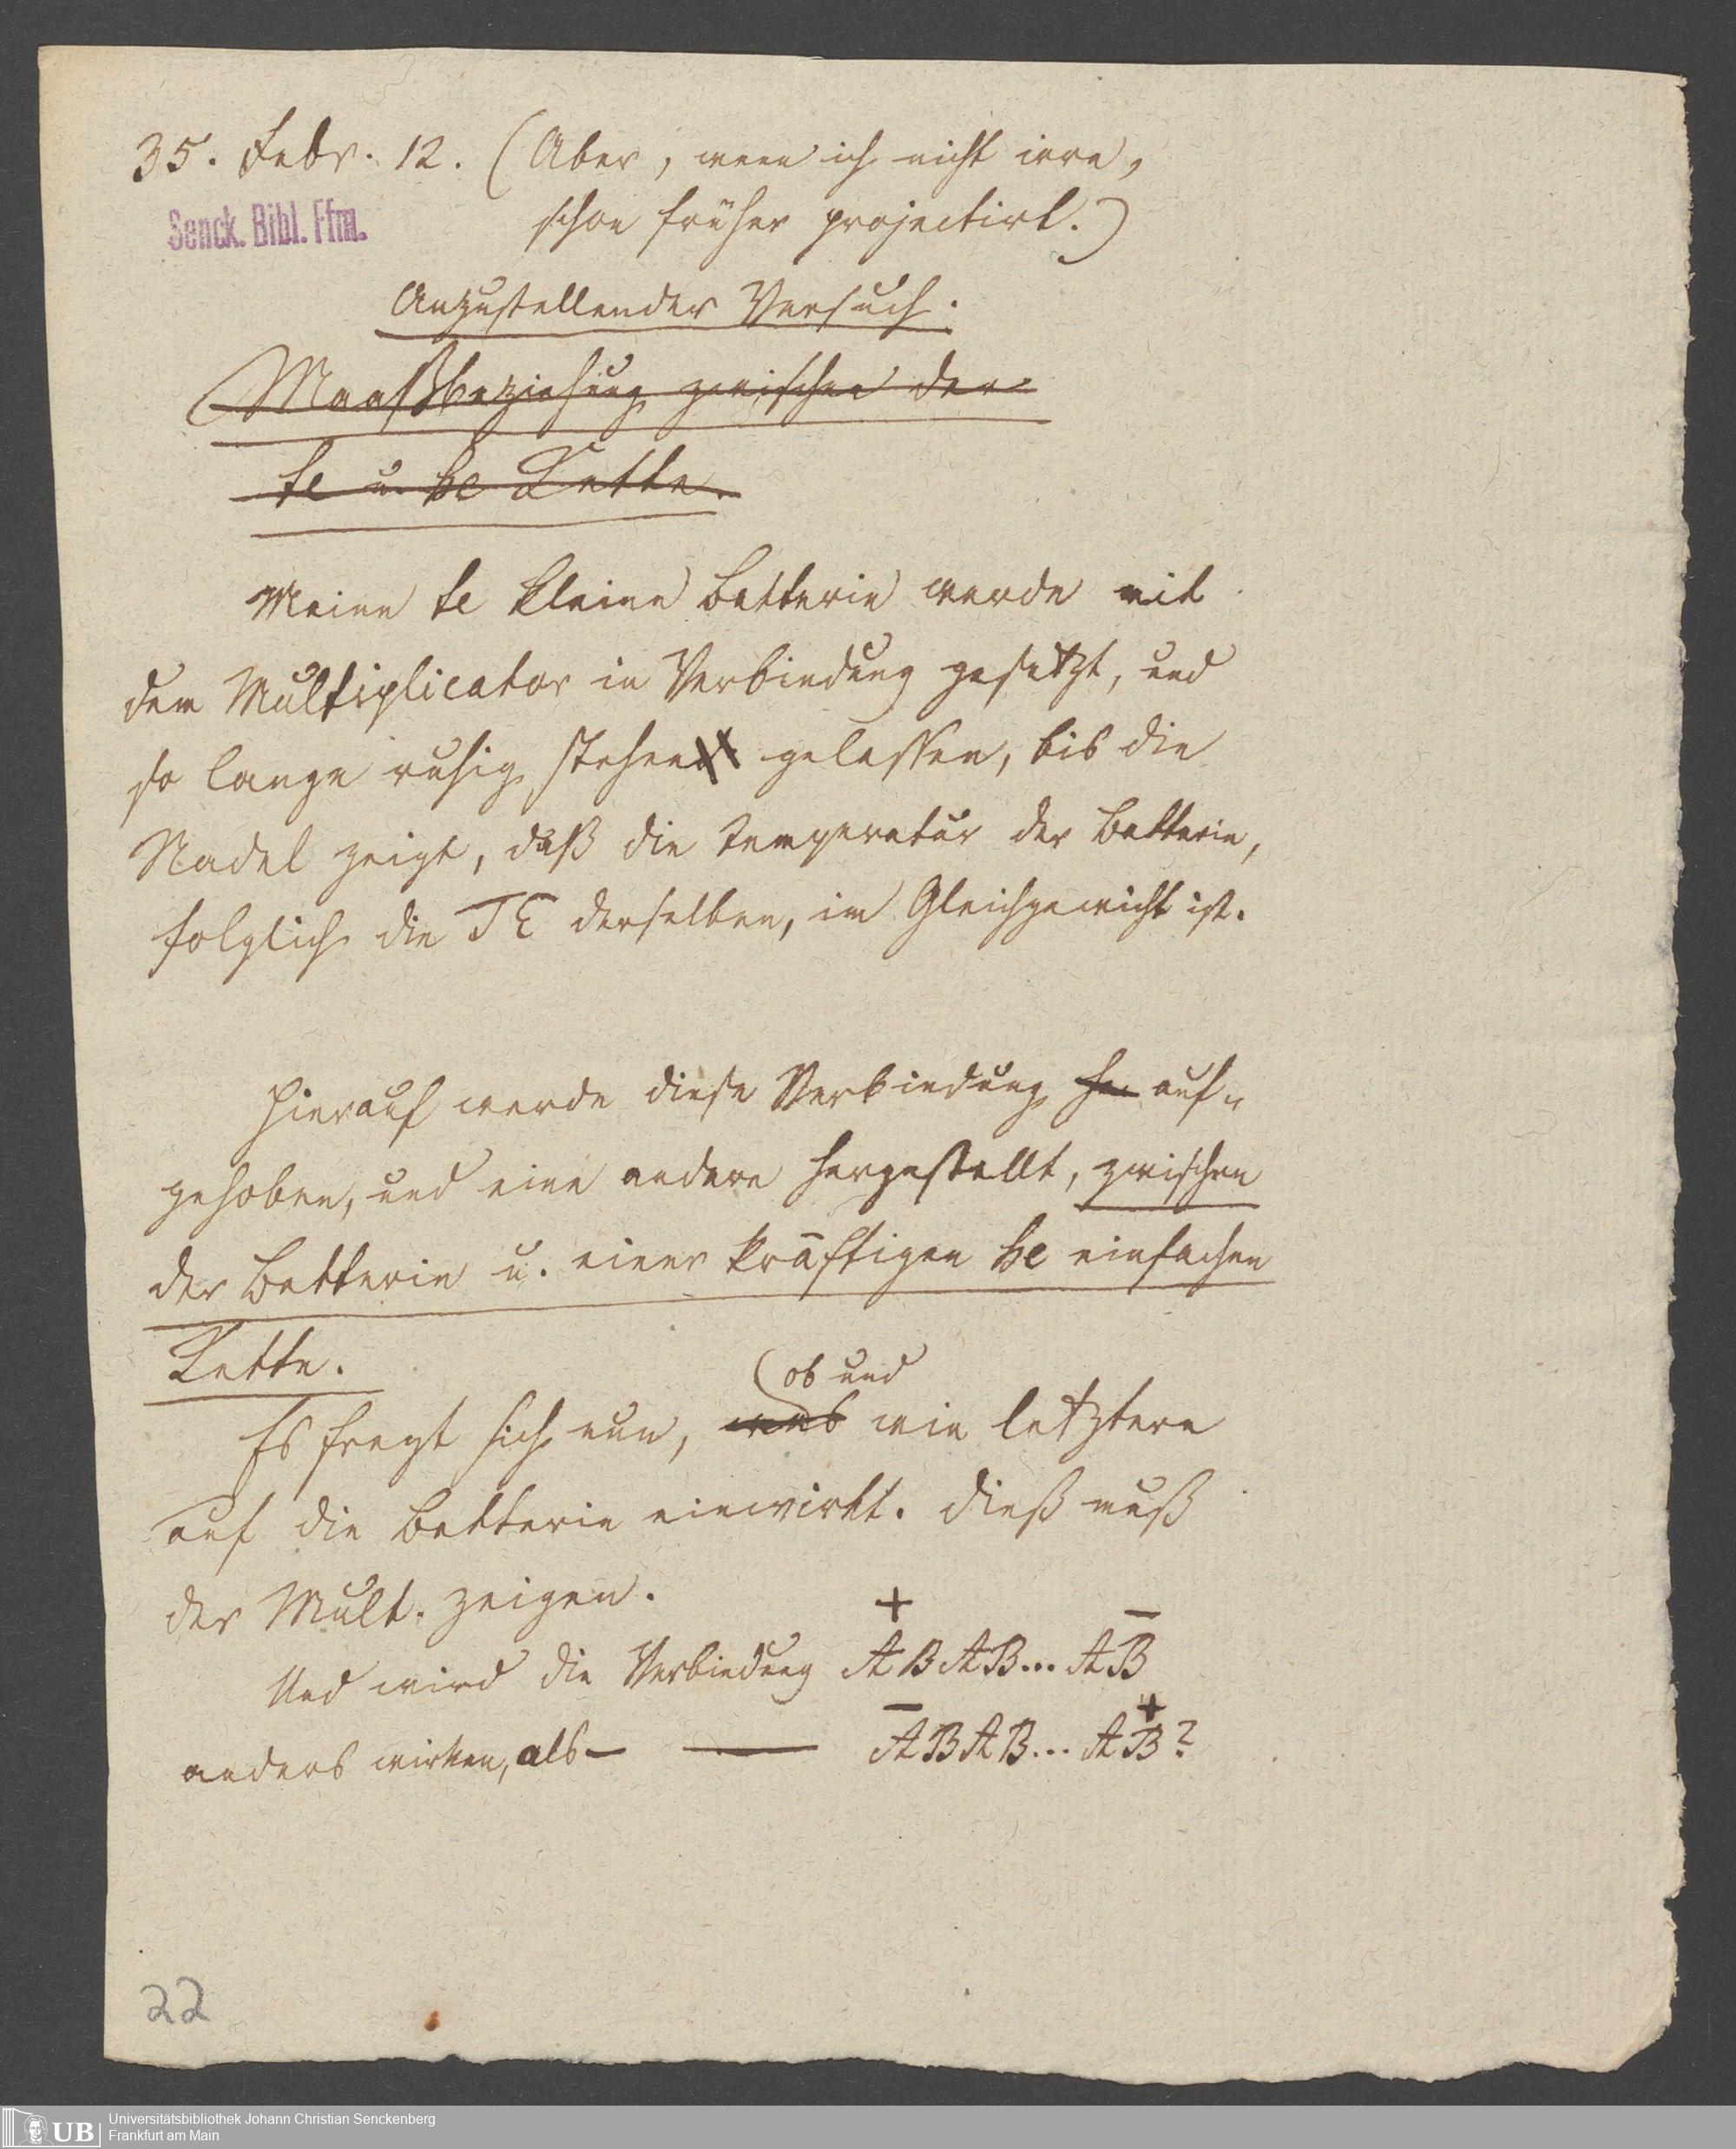 35. Febr. 12. (Aber, wenn ich nicht irre,
schon früher projectirt.)
Senck. Bibl. Ffm.
Anzustellender Versuch.
Maaßbeziehung zwischen der
te u. he Kette.
Meine te kleine Batterie werde mit
dem Multiplicator in Verbindung gesetzt, und
so lange ruhig stehen gelassen, bis die
Nadel zeigt, daß die Temperatur der Batterie,
folglich die TE derselben, im Gleichgewicht ist.
Hierauf werde diese Verbindung he auf-
gehoben, und eine andere hergestellt, zwischen
der Batterie u. einer kräftigen he einfachen
Kette.
ob und
Es fragt sich nun, was wie letztere
auf die Batterie einwirkt. Dieß muß
der Mult. zeigen.
+ –
Und wird die Verbindung ABAB... AB
– +
anders wirken, als — — ABAB... AB?
22
UB Universitätsbibliothek Johann Christian Senckenberg
Frankfurt am Main